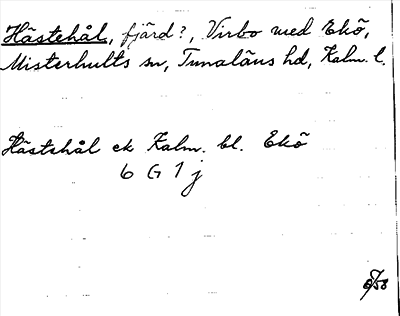 Hästehål, fjärd?, Virbo med Ekö,
Misterhults sn, Tunaläns hd, Kalm. l.
Hästshål ek Kalm. bl. Ekö
6 G 1 j